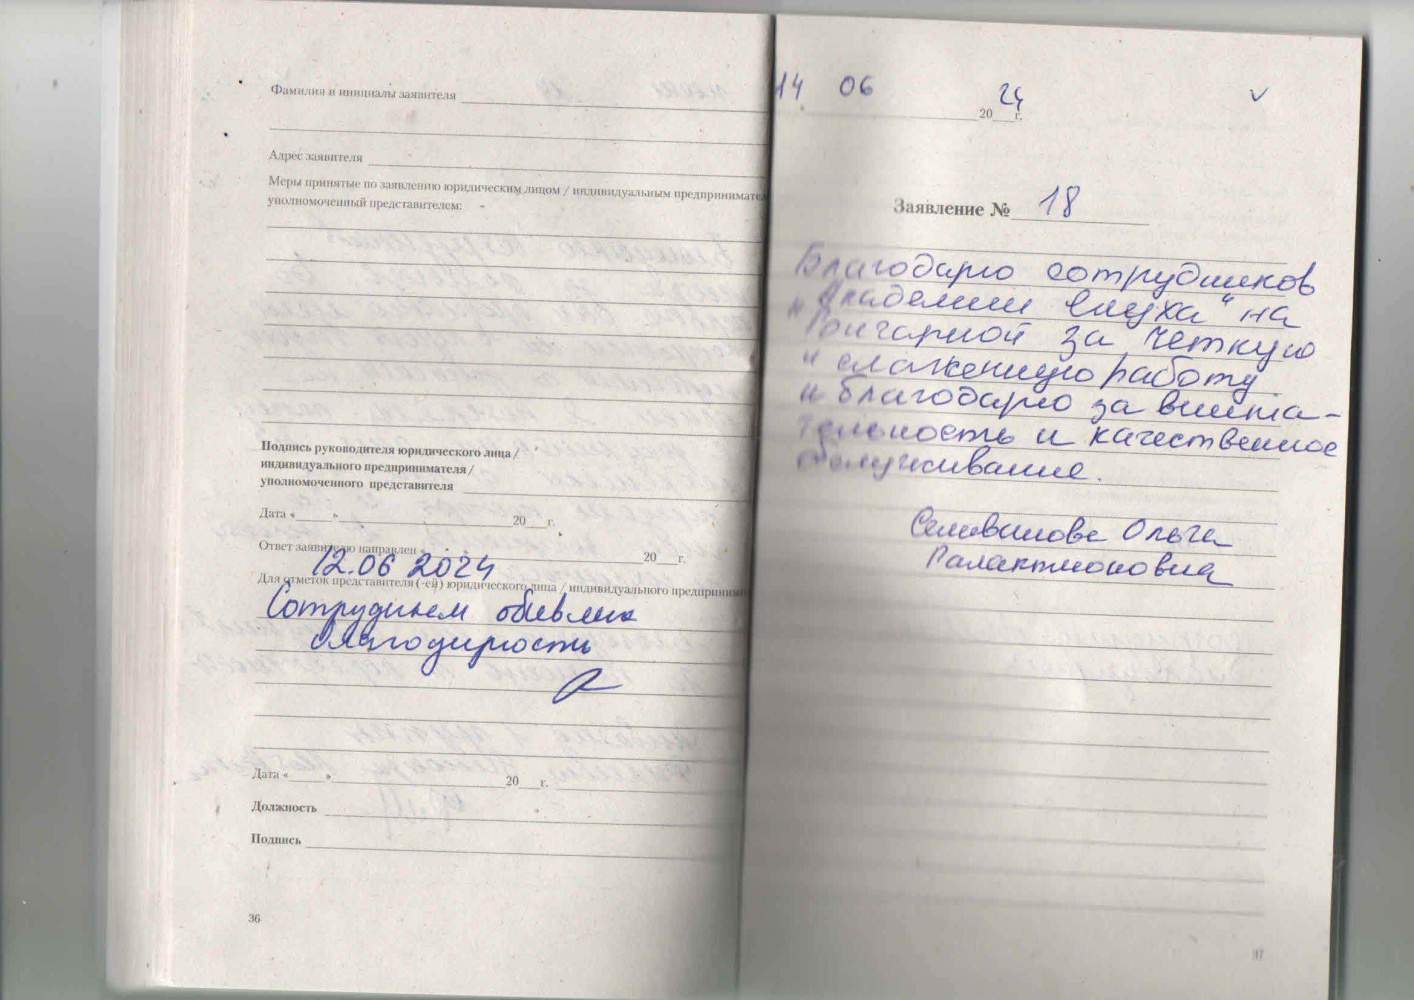 Фамилия и инициалы заявителя
Адрес заявителя
Меры принятые по заявлению юридическим лицом / индивидуальным предпринимател
уполномоченный представителем:
Подпись руководителя юридического лица /
индивидуального предпринимателя /
уполномоченного представителя
Дата « » 20 г.
Ответ заявителю направлен « 20 г.
12.06 2024
Для отметок представителя (-ей) юридического лица / индивидуального предприним
Сотрудникам объявлена
благодарность
Дата « » 20 г.
Должность
Подпись
36
14 06 2024 г.
Заявление № 18
Благодарю сотрудников
"Академии слуха" на
за четкую
и слаженную работу
и благодарю за внима-
тельность и качественное
обслуживание.
Селиванова Ольга
Галактионовна
37